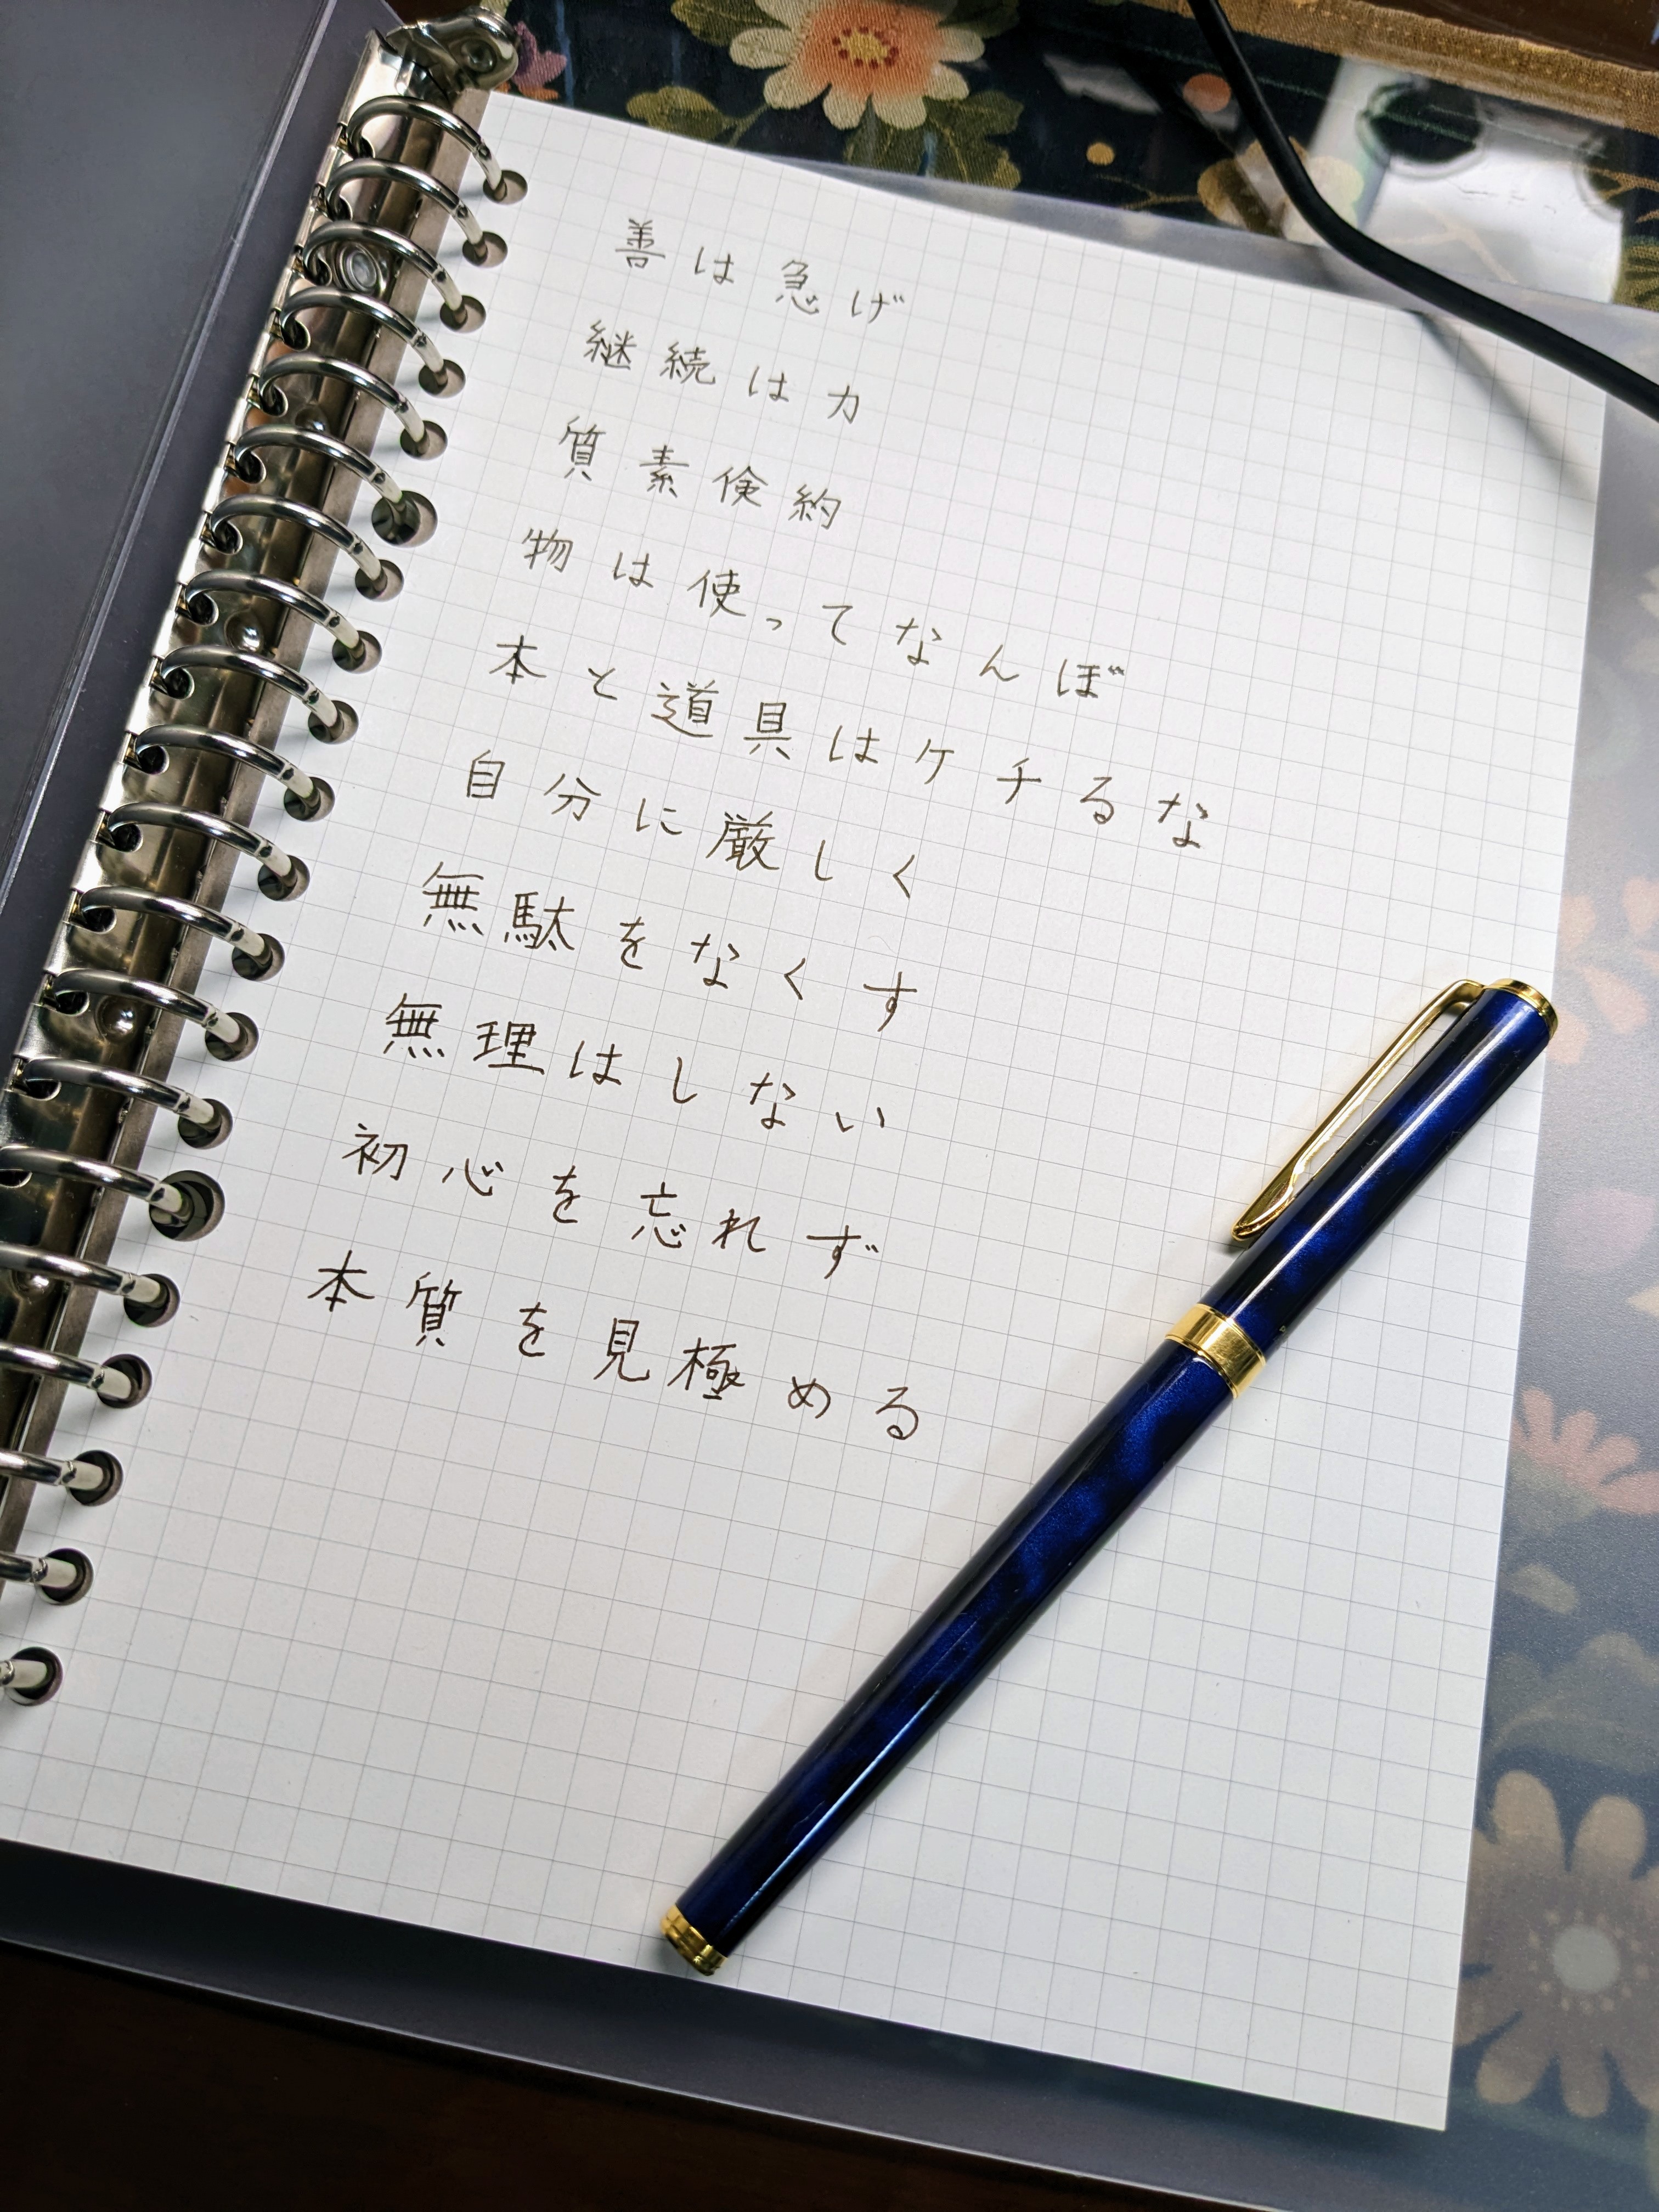 善は急げ
継続は力
質素倹約
物は使ってなんぼ
本と道具はケチるな
自分に厳しく
無駄をなくす
無理はしない
初心を忘れず
本質を見極める